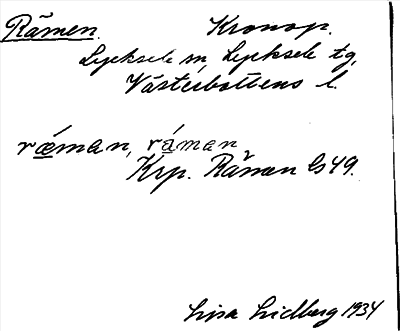 Råmen. Kronop.
Lycksele sn, Lycksele tg,
Västerbottens l.
rǽman, ráman
Krp. Råman Gs 49.
Lisa Lidberg 1934